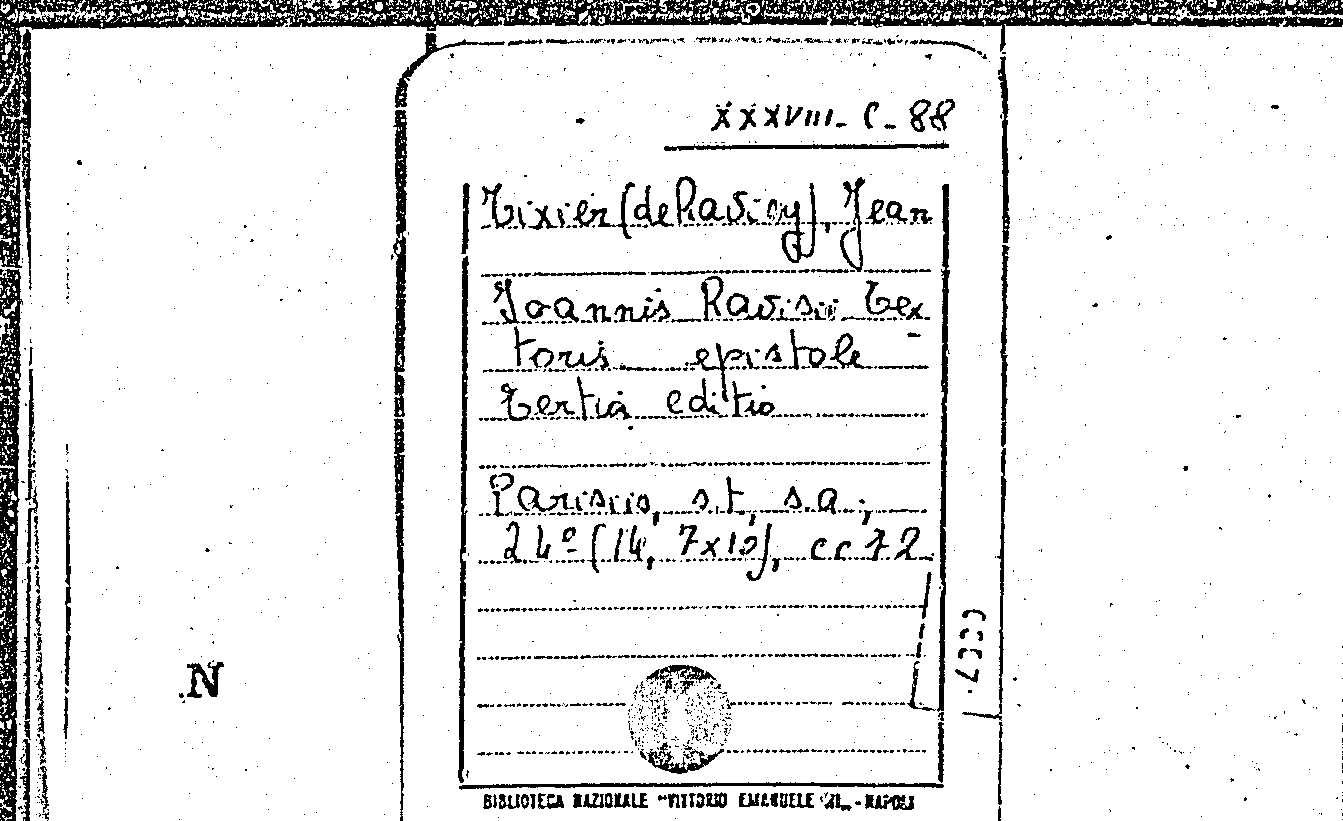 XXXVIII- C- 88
Tixier (de Ravisy), Jean
Joannis Ravisii Tex-
toris epistole
Tertia editio
Parisiis, s.t, s.a.;
24º (14, 7x10), cc 72
N
BIBLIOTECA NAZIONALE "VITTORIO EMANUELE III„ - NAPOLI